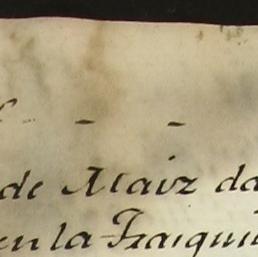 de Maiz da
en la Fraiqui